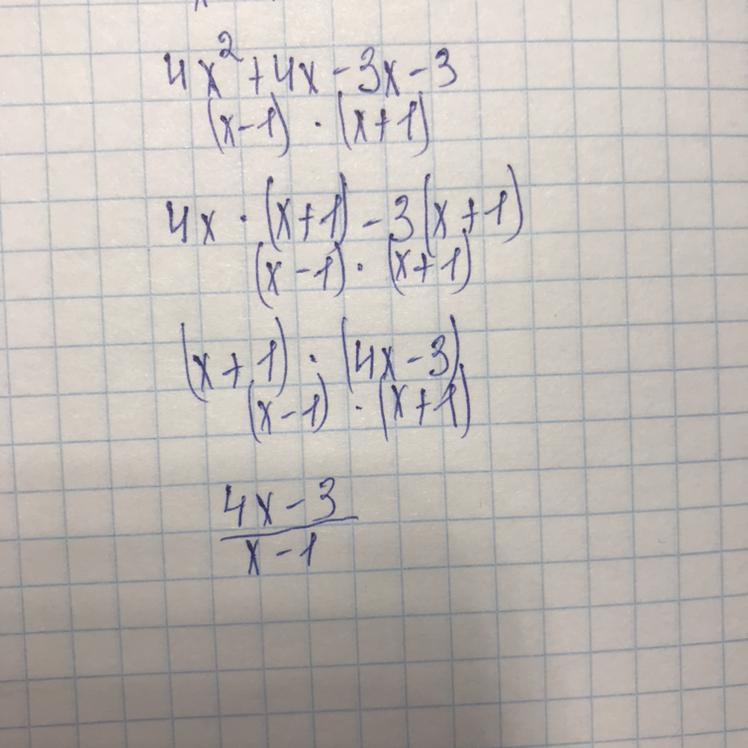 4x²+4x-3x-3
(x-1)·(x+1)
4x·(x+1)-3(x+1)
(x-1)·(x+1)
(x+1)·(4x-3)
(x-1)·(x+1)
4x-3
x-1